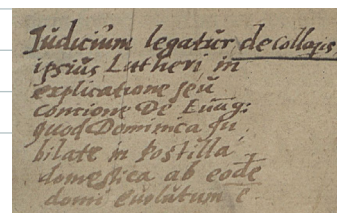 Iudicium legatur de Collogijs
ipsius Lutheri in
explicatione seu
concione De Euāg:
quod Dominica Ju
bilate in Postilla
domestica ab eodē
domi euulgatum ē